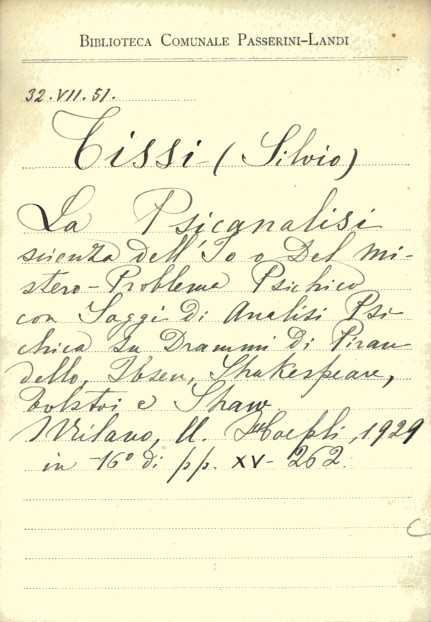 BIBLIOTECA COMUNALE PASSERINI-LANDI
32.VII.51.
Tissi (Silvio)
La Psicanalisi
scienza dell'Io o Del mi-
stero-Problema Psichico
con Saggi di Analisi Psi
chica su Drammi di Piran
dello, Ibsen, Shakespeare,
Tolstoi e Shaw
Milano, U. Hoepli, 1929
in -16° di pp. XV-262.